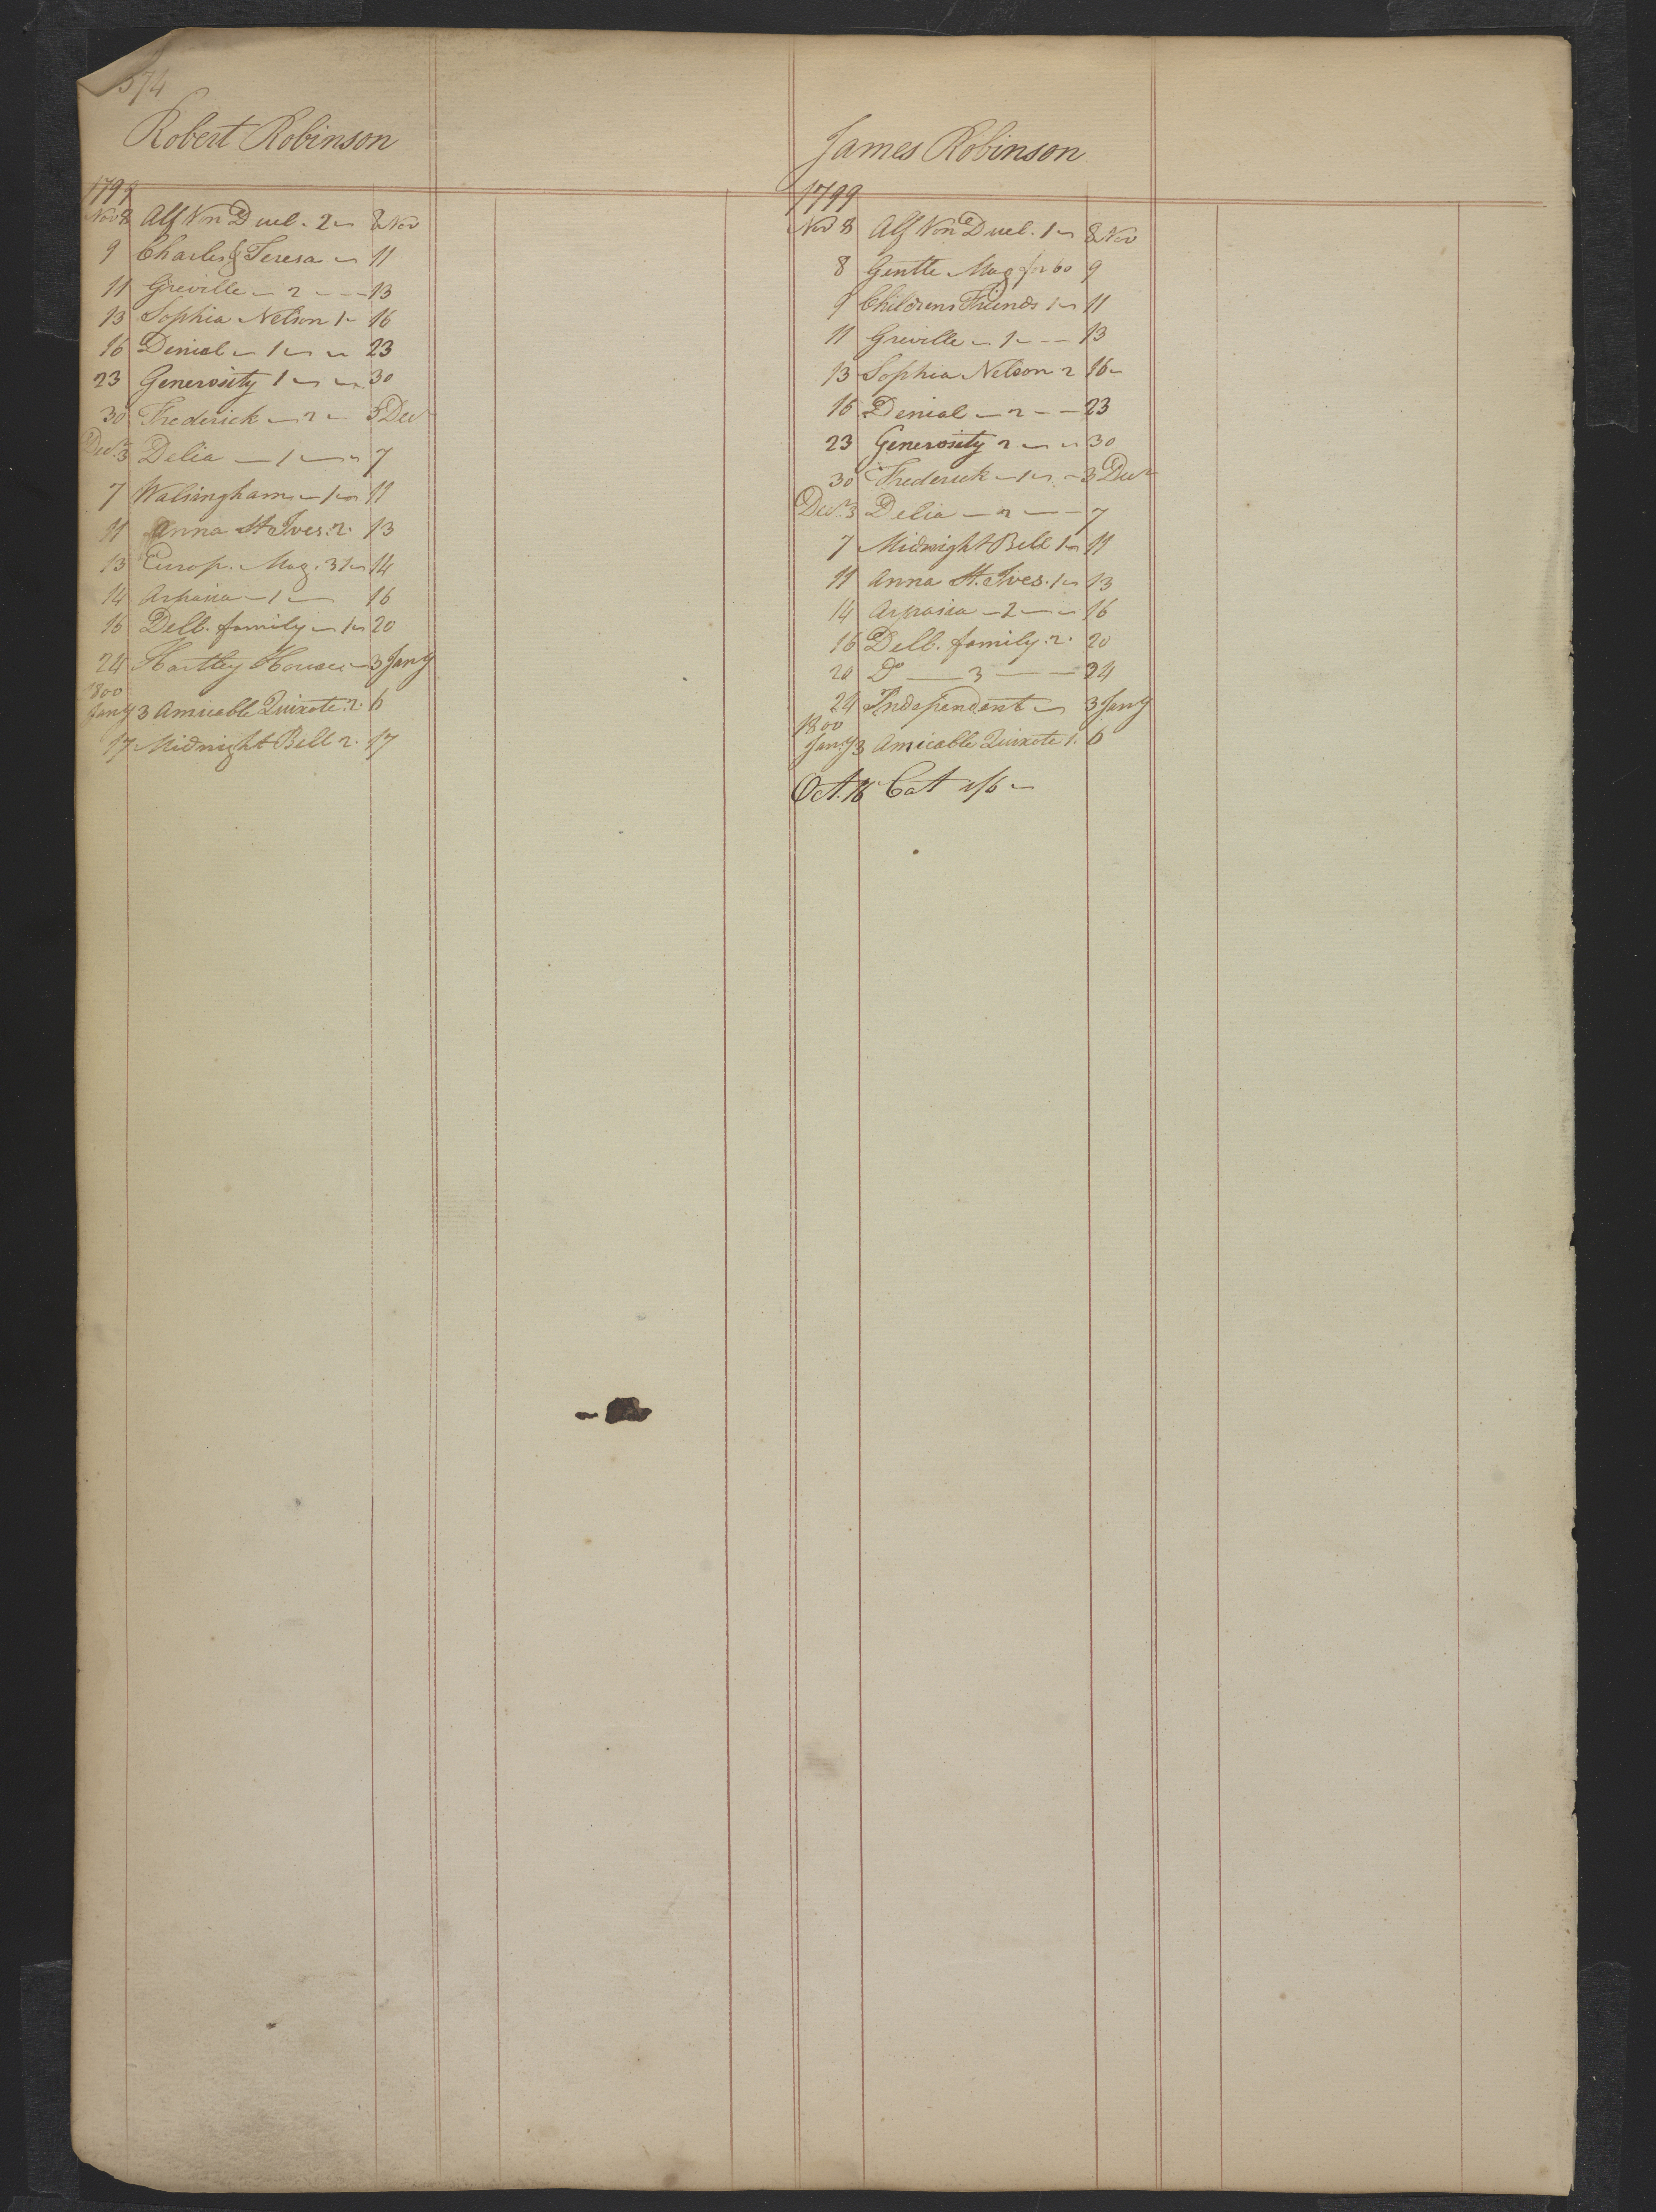 574
Robert Robinson
1799
Nov 8 Alf Von Duel. 2 8 Nov
9 Charles & Teresa 11
11 Greville — 2 — 13
13 Sophia Nelson 1 16
16 Denial — 1 — 23
23 Generosity 1 — 30
30 Frederick — 2 — 3 Decr
Decr. 3 Delia — 1 — 7
7 Walsingham — 1 — 11
11 Anna St Ives. 2. 13
13 Europ. Mag. 31 14
14 Arpasia — 1 — 16
16 Delb. family — 1 20
24 Hartley House — 3 Jany
1800
Jany 3 Amicable Quixote. 2. 6
17 Midnight Bell 2. 17
James Robinson
1799
Nov 8 Alf Von Duel. 1 8 Nov
8 Gentle Mag for 60 9
9 Childrens Friends 1 11
11 Greville — 1 — 13
13 Sophia Nelson 2 16
16 Denial — 2 — 23
23 Generosity 2 — 30
30 Frederick — 1 — 3 Decr
Decr. 3 Delia — 2 — 7
7 Midnight Bell 1 11
11 Anna St. Ives. 1 13
14 Arpasia — 2 — 16
16 Delb. family. 2. 20
20 Do — 3 — 24
24 Independent — 3 Jany
1800
Jany 3 Amicable Quixote 1. 6
Oct. 16 Cat 1/6